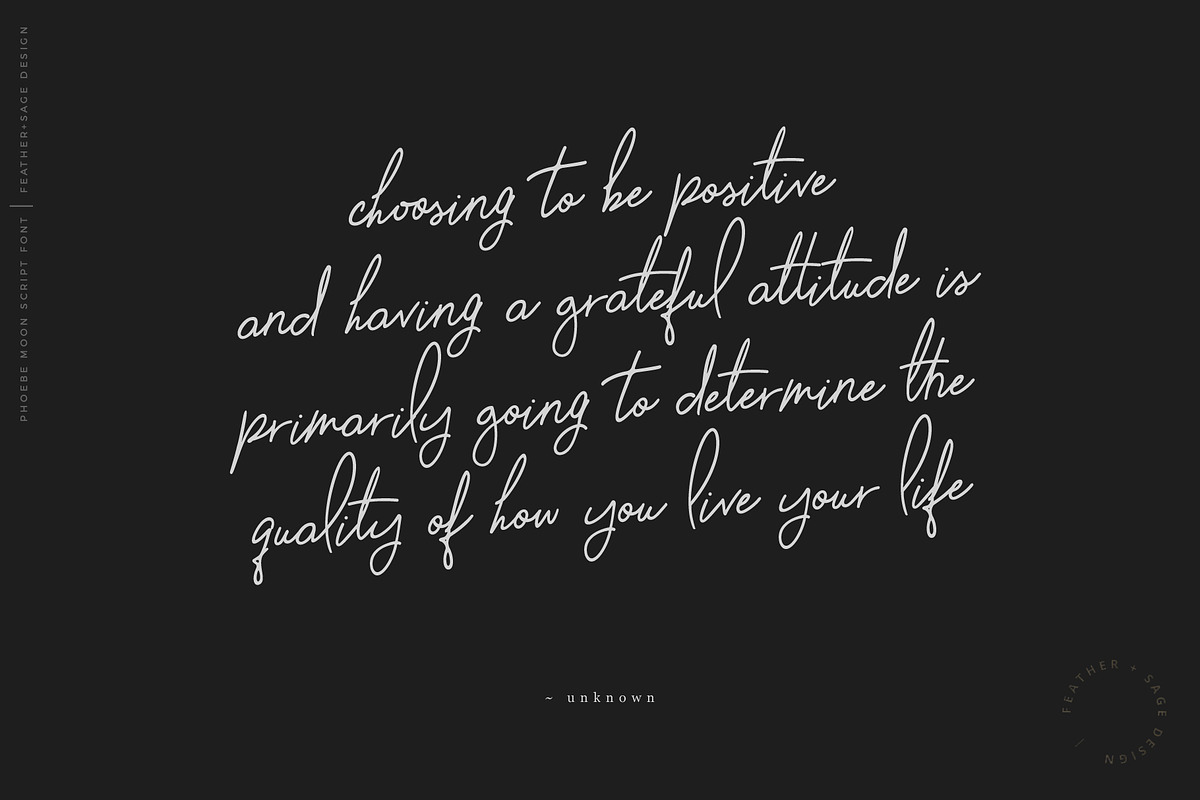 PHOEBE MOON SCRIPT FONT | FEATHER+SAGE DESIGN
choosing to be positive
and having a grateful attitude is
primarily going to determine the
quality of how you live your life
~ unknown
FEATHER + SAGE DESIGN |